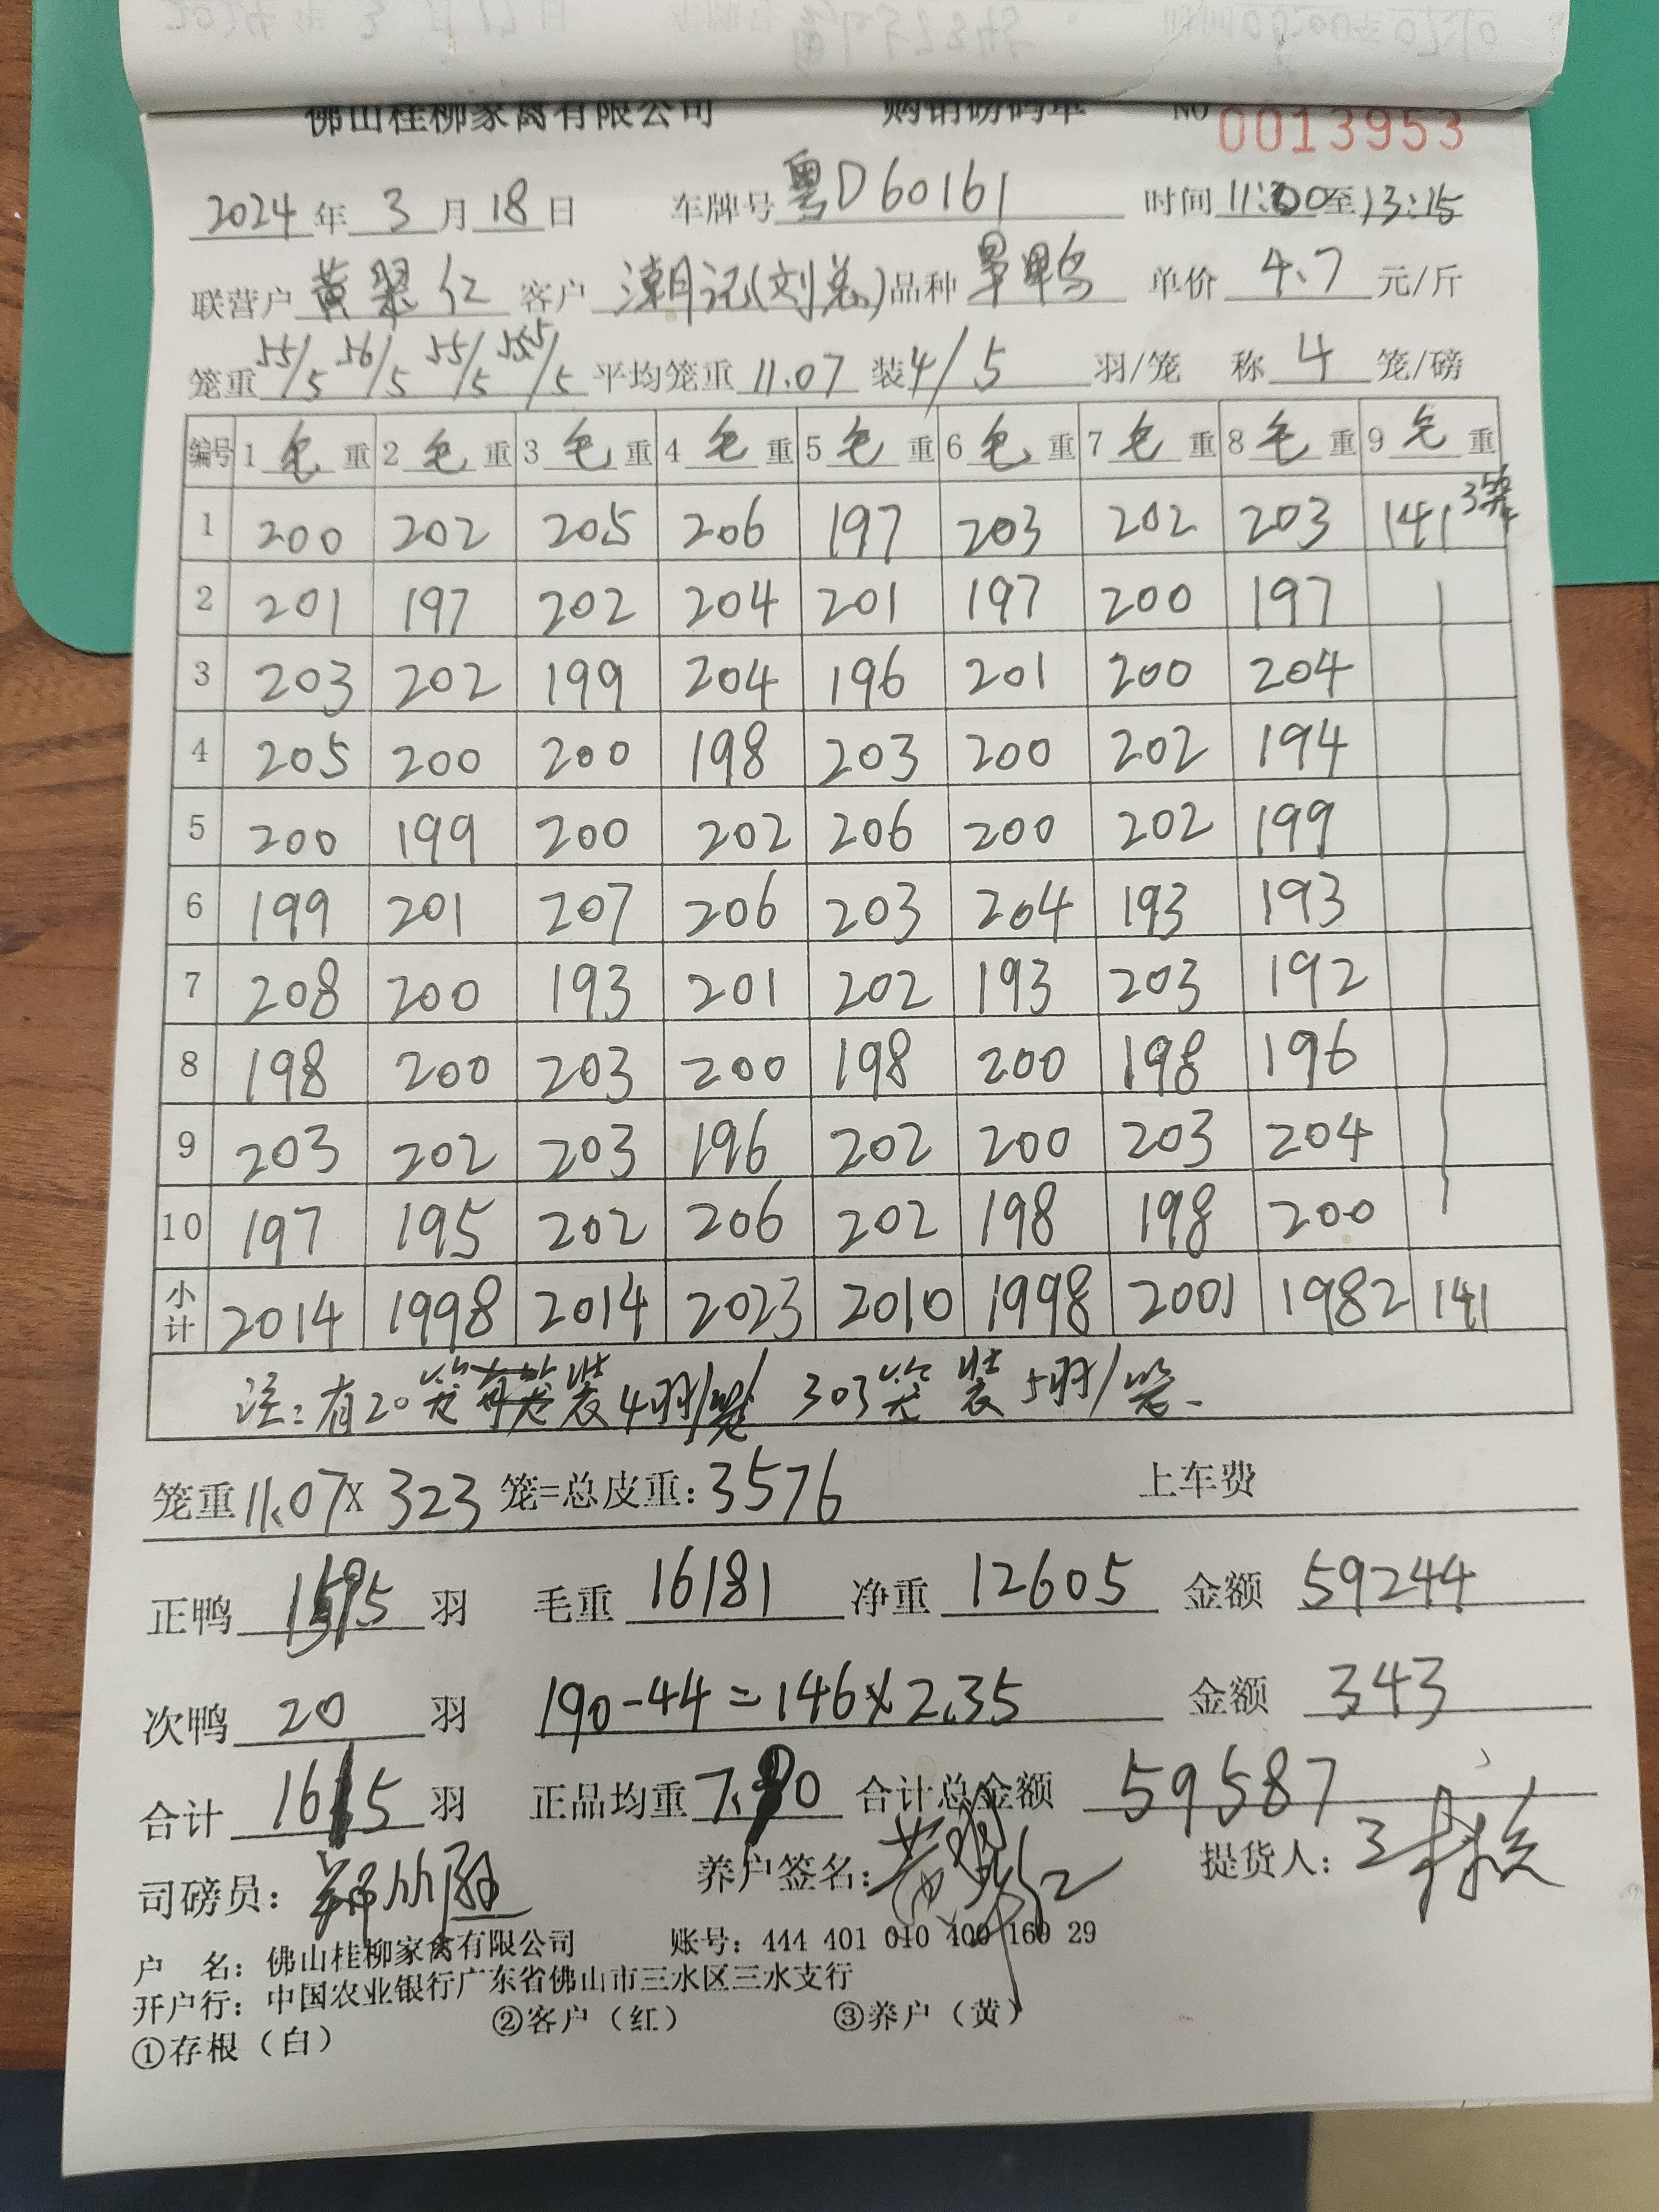 佛山桂柳家禽有限公司 购销磅码单 NO 0013953
2024年 3月18日 车牌号 粤D60161 时间 11:00至13:15
联营户 黄翠仁 客户 潮记(刘总) 品种 旱鸭 单价 4.7 元/斤
笼重 55/5 56/5 55/5 55.5/5 平均笼重 11.07 装 4/5 羽/笼 称 4 笼/磅
编号 1 毛重 2 毛重 3 毛重 4 毛重 5 毛重 6 毛重 7 毛重 8 毛重 9 毛重
1 200 202 205 206 197 203 202 203 141 3笼
2 201 197 202 204 201 197 200 197
3 203 202 199 204 196 201 200 204
4 205 200 200 198 203 200 202 194
5 200 199 200 202 206 200 202 199
6 199 201 207 206 203 204 193 193
7 208 200 193 201 202 193 203 192
8 198 200 203 200 198 200 198 196
9 203 202 203 196 202 200 203 204
10 197 195 202 206 202 198 198 200
小计 2014 1998 2014 2023 2010 1998 2001 1982 141
注:有20笼装4羽/笼 303笼装5羽/笼.
笼重 11.07 X 323 笼=总皮重: 3576 上车费
正鸭 1595 羽 毛重 16181 净重 12605 金额 59244
次鸭 20 羽 190-44=146×2.35 金额 343
合计 1615 羽 正品均重 7.90 合计总金额 59587
司磅员: 养户签名: 提货人:
户 名: 佛山桂柳家禽有限公司 账号: 444 401 040 400 160 29
开户行: 中国农业银行广东省佛山市三水区三水支行
①存根(白) ②客户(红) ③养户(黄)